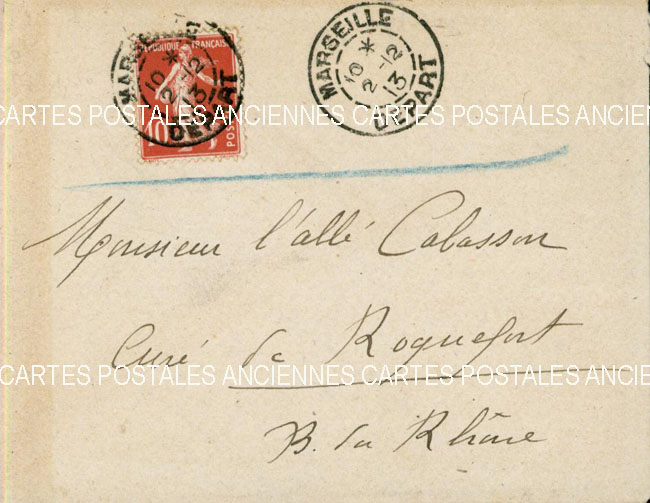 MARSEILLE
DEPART
10 *
2 -12
13
MARSEILLE
DEPART
10 *
2 -12
13
REPUBLIQUE FRANÇAISE
10
POSTES
CARTES POSTALES ANCIENNES CARTES POSTALES ANCIENNES
Monsieur l'abbé Colasson
Curé de Roquefort
CARTES POSTALES ANCIENNES CARTES POSTALES ANCIEN
B. du Rhône